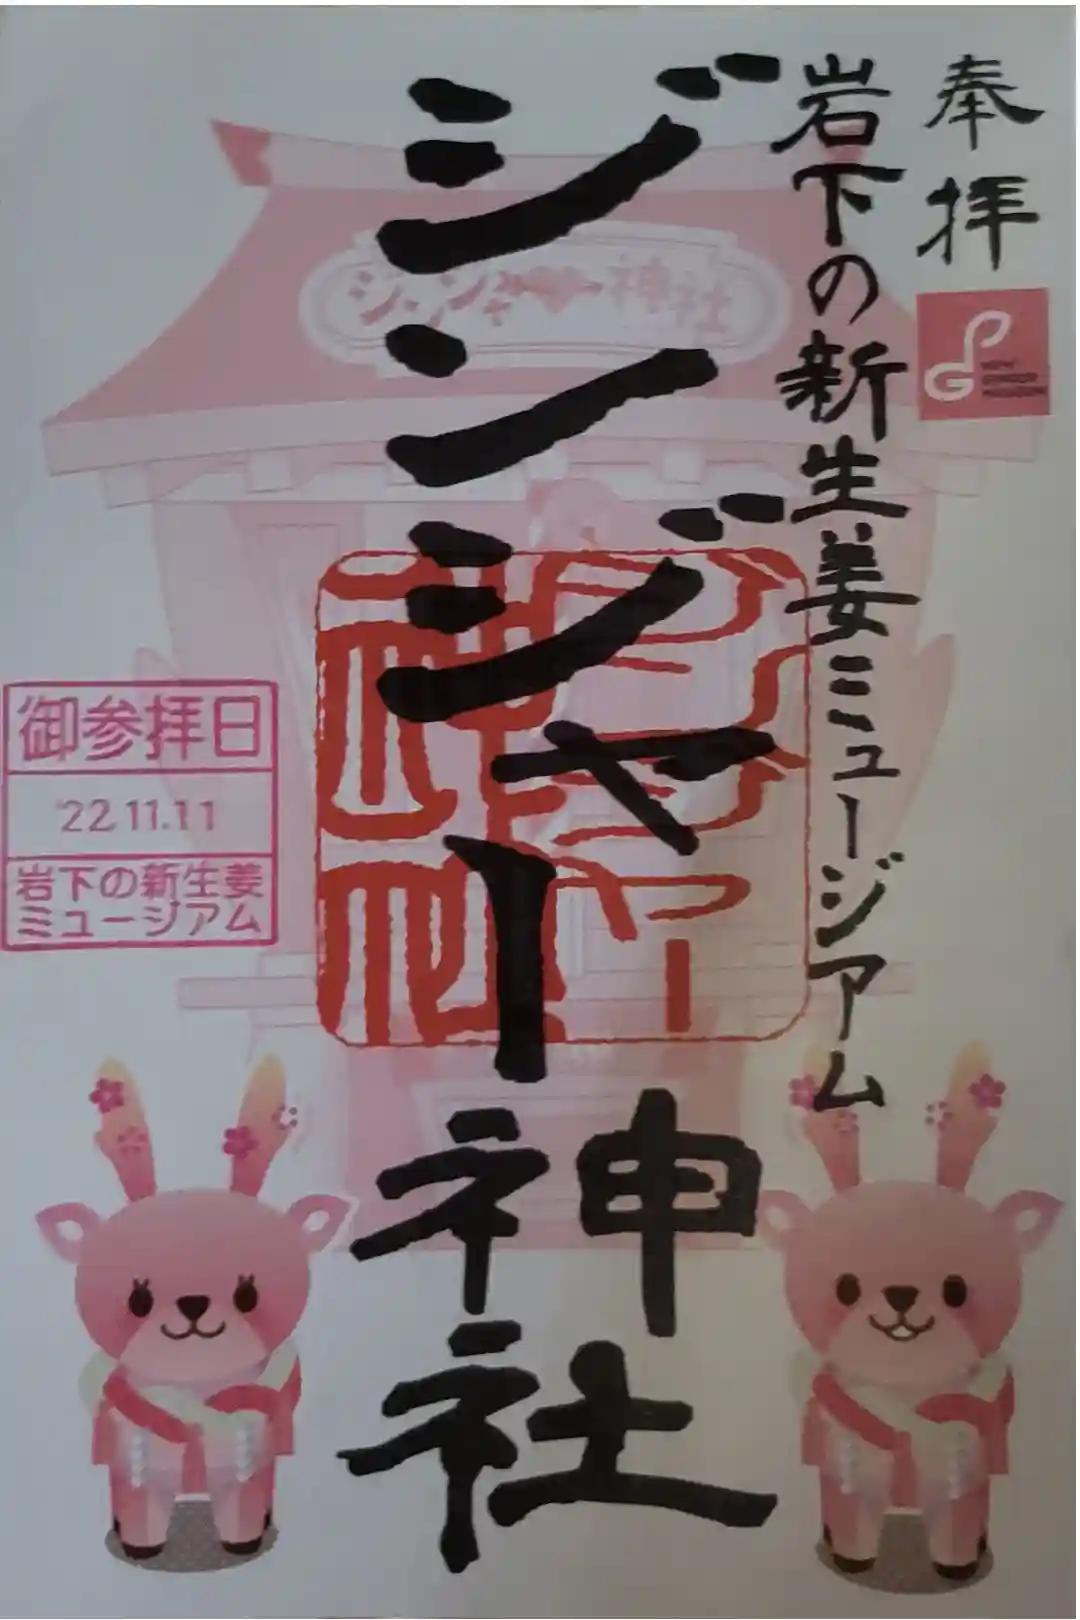 奉拝
岩下の新生姜ミュージアム
ジンジャー神社
ジンジャー神社
ジンジャー神社
御参拝日
'22.11.11
岩下の新生姜
ミュージアム